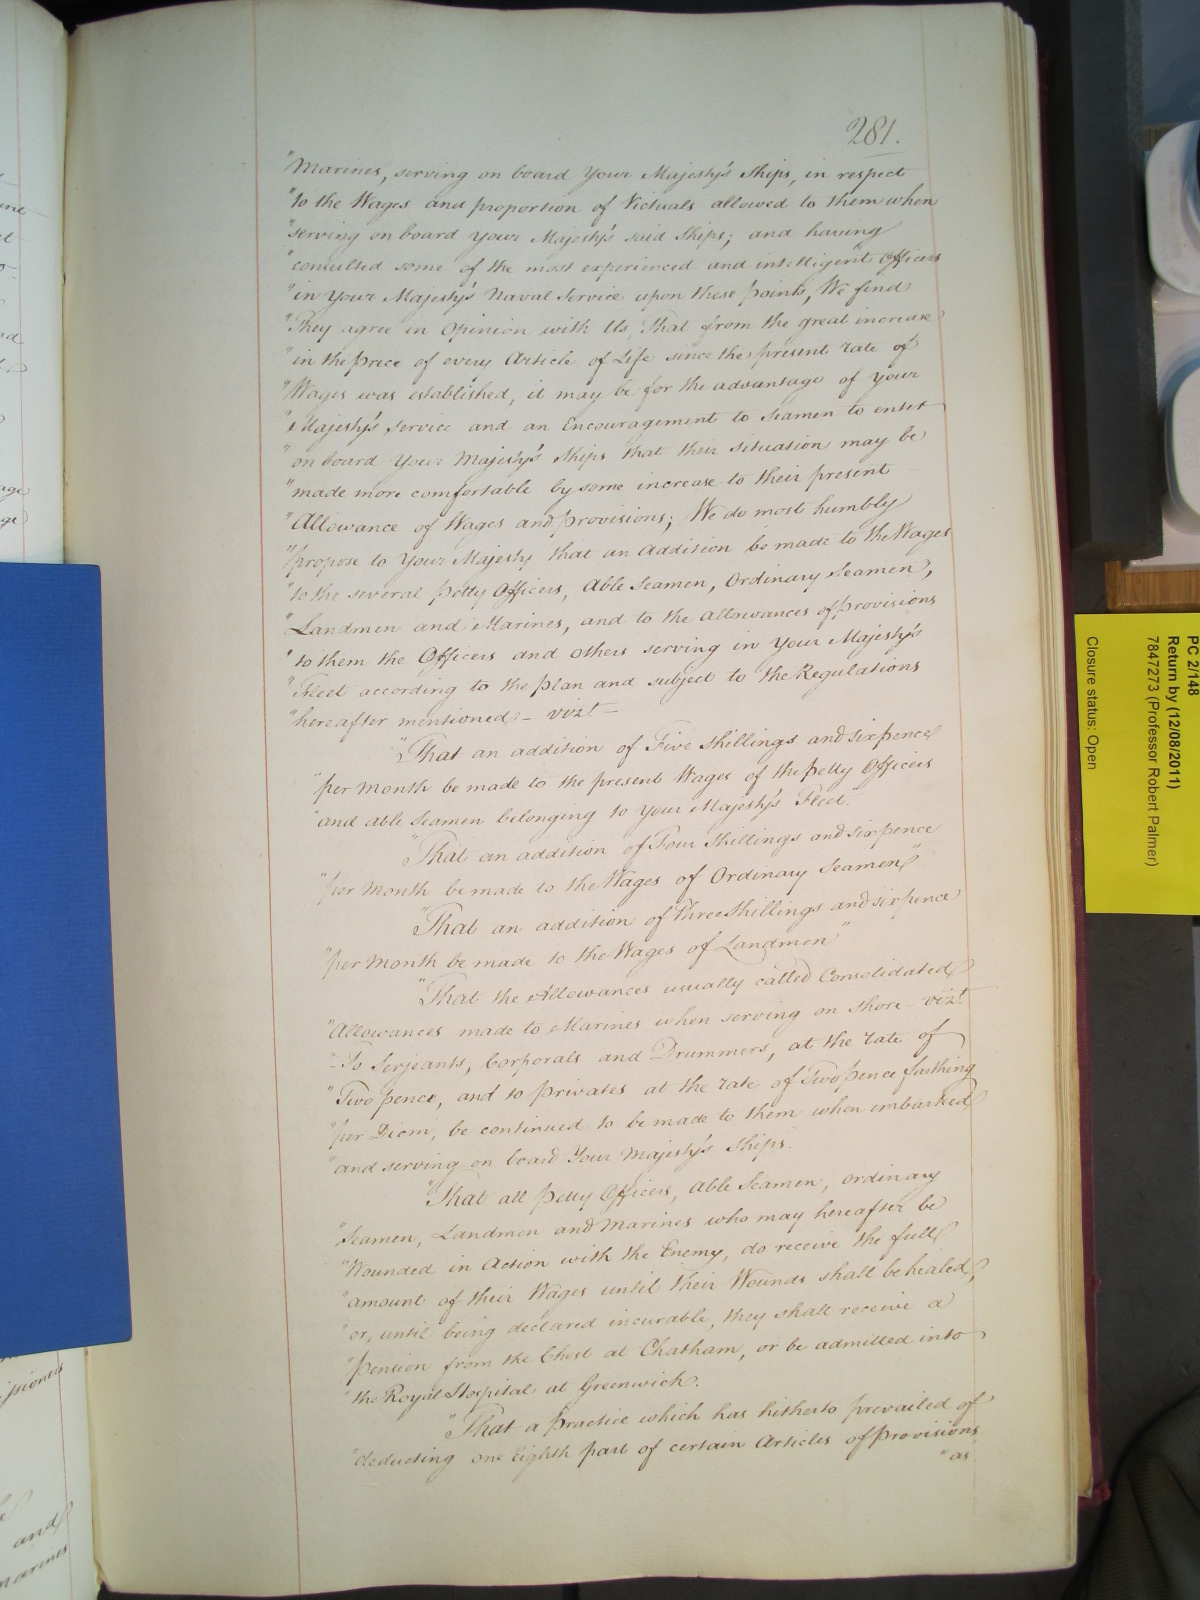 281.
"Marines, serving on board Your Majesty's Ships, in respect
"to the Wages and proportion of Victuals allowed to them when
"serving on board Your Majesty's said Ships; and having
"consulted some of the most experienced and intelligent Officers
"in Your Majesty's Naval Service upon these points, We find
"They agree in Opinion with Us, That from the great increase
"in the Price of every Article of Life since the present rate of
"Wages was established, it may be for the advantage of Your
"Majesty's Service and an Encouragement to Seamen to enter
"on board Your Majesty's Ships that their situation may be
"made more comfortable by some increase to their present
"Allowance of Wages and provisions; We do most humbly
"propose to Your Majesty that an Addition be made to the Wages
"to the several Petty Officers, Able Seamen, Ordinary Seamen,
"Landmen and Marines, and to the allowances of provisions
"to them the Officers and others serving in Your Majesty's
"Fleet according to the plan and subject to the Regulations
"hereafter mentioned - vizt. -
"That an addition of Five Shillings and sixpence
"per Month be made to the present Wages of the Petty Officers
"and able Seamen belonging to Your Majesty's Fleet."
"That an addition of Four Shillings and sixpence
"per Month be made to the Wages of Ordinary Seamen"
"That an addition of Three Shillings and sixpence
"per Month be made to the Wages of Landmen"
"That the Allowances usually called Consolidated
"Allowances made to Marines when serving on shore - vizt.
"- To Serjeants, Corporals and Drummers, at the rate of
"Two pence, and to privates at the rate of Two pence farthing
"per Diem, be continued to be made to them when embarked
"and serving on board Your Majesty's Ships.
"That all Petty Officers, Able Seamen, ordinary
"Seamen, Landmen and Marines who may hereafter be
"Wounded in Action with the Enemy, do receive the full
"amount of their Wages until their Wounds shall be healed,
"or, until being declared incurable, they shall receive a
"Pension from the Chest at Chatham, or be admitted into
"the Royal Hospital at Greenwich.
"That a Practice which has hitherto prevailed of
"deducting one Eighth part of certain Articles of Provisions
"as
PC 2/148
Return by (12/08/2011)
7847273 (Professor Robert Palmer)
Closure status: Open
and
marines